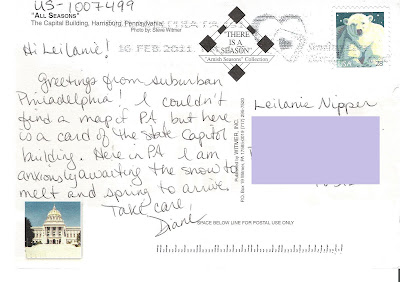 US-1007499
"ALL SEASONS"
The Capital Building, Harrisburg, Pennsylvania
Photo by: Steve Witmer
16 FEB 2011
THERE
IS A
SEASON
"Amish Seasons" Collection
USA
28
Hi Leilanie!
Greetings from suburban
Philadelphia! I couldn't
find a map of PA, but here
is a card of the State Capitol
building. Here in PA I am
anxiously awaiting the snow to
melt and spring to arrive.
Take care,
Diane
Leilanie Nipper
Published by WITMER, INC.
SPACE BELOW LINE FOR POSTAL USE ONLY